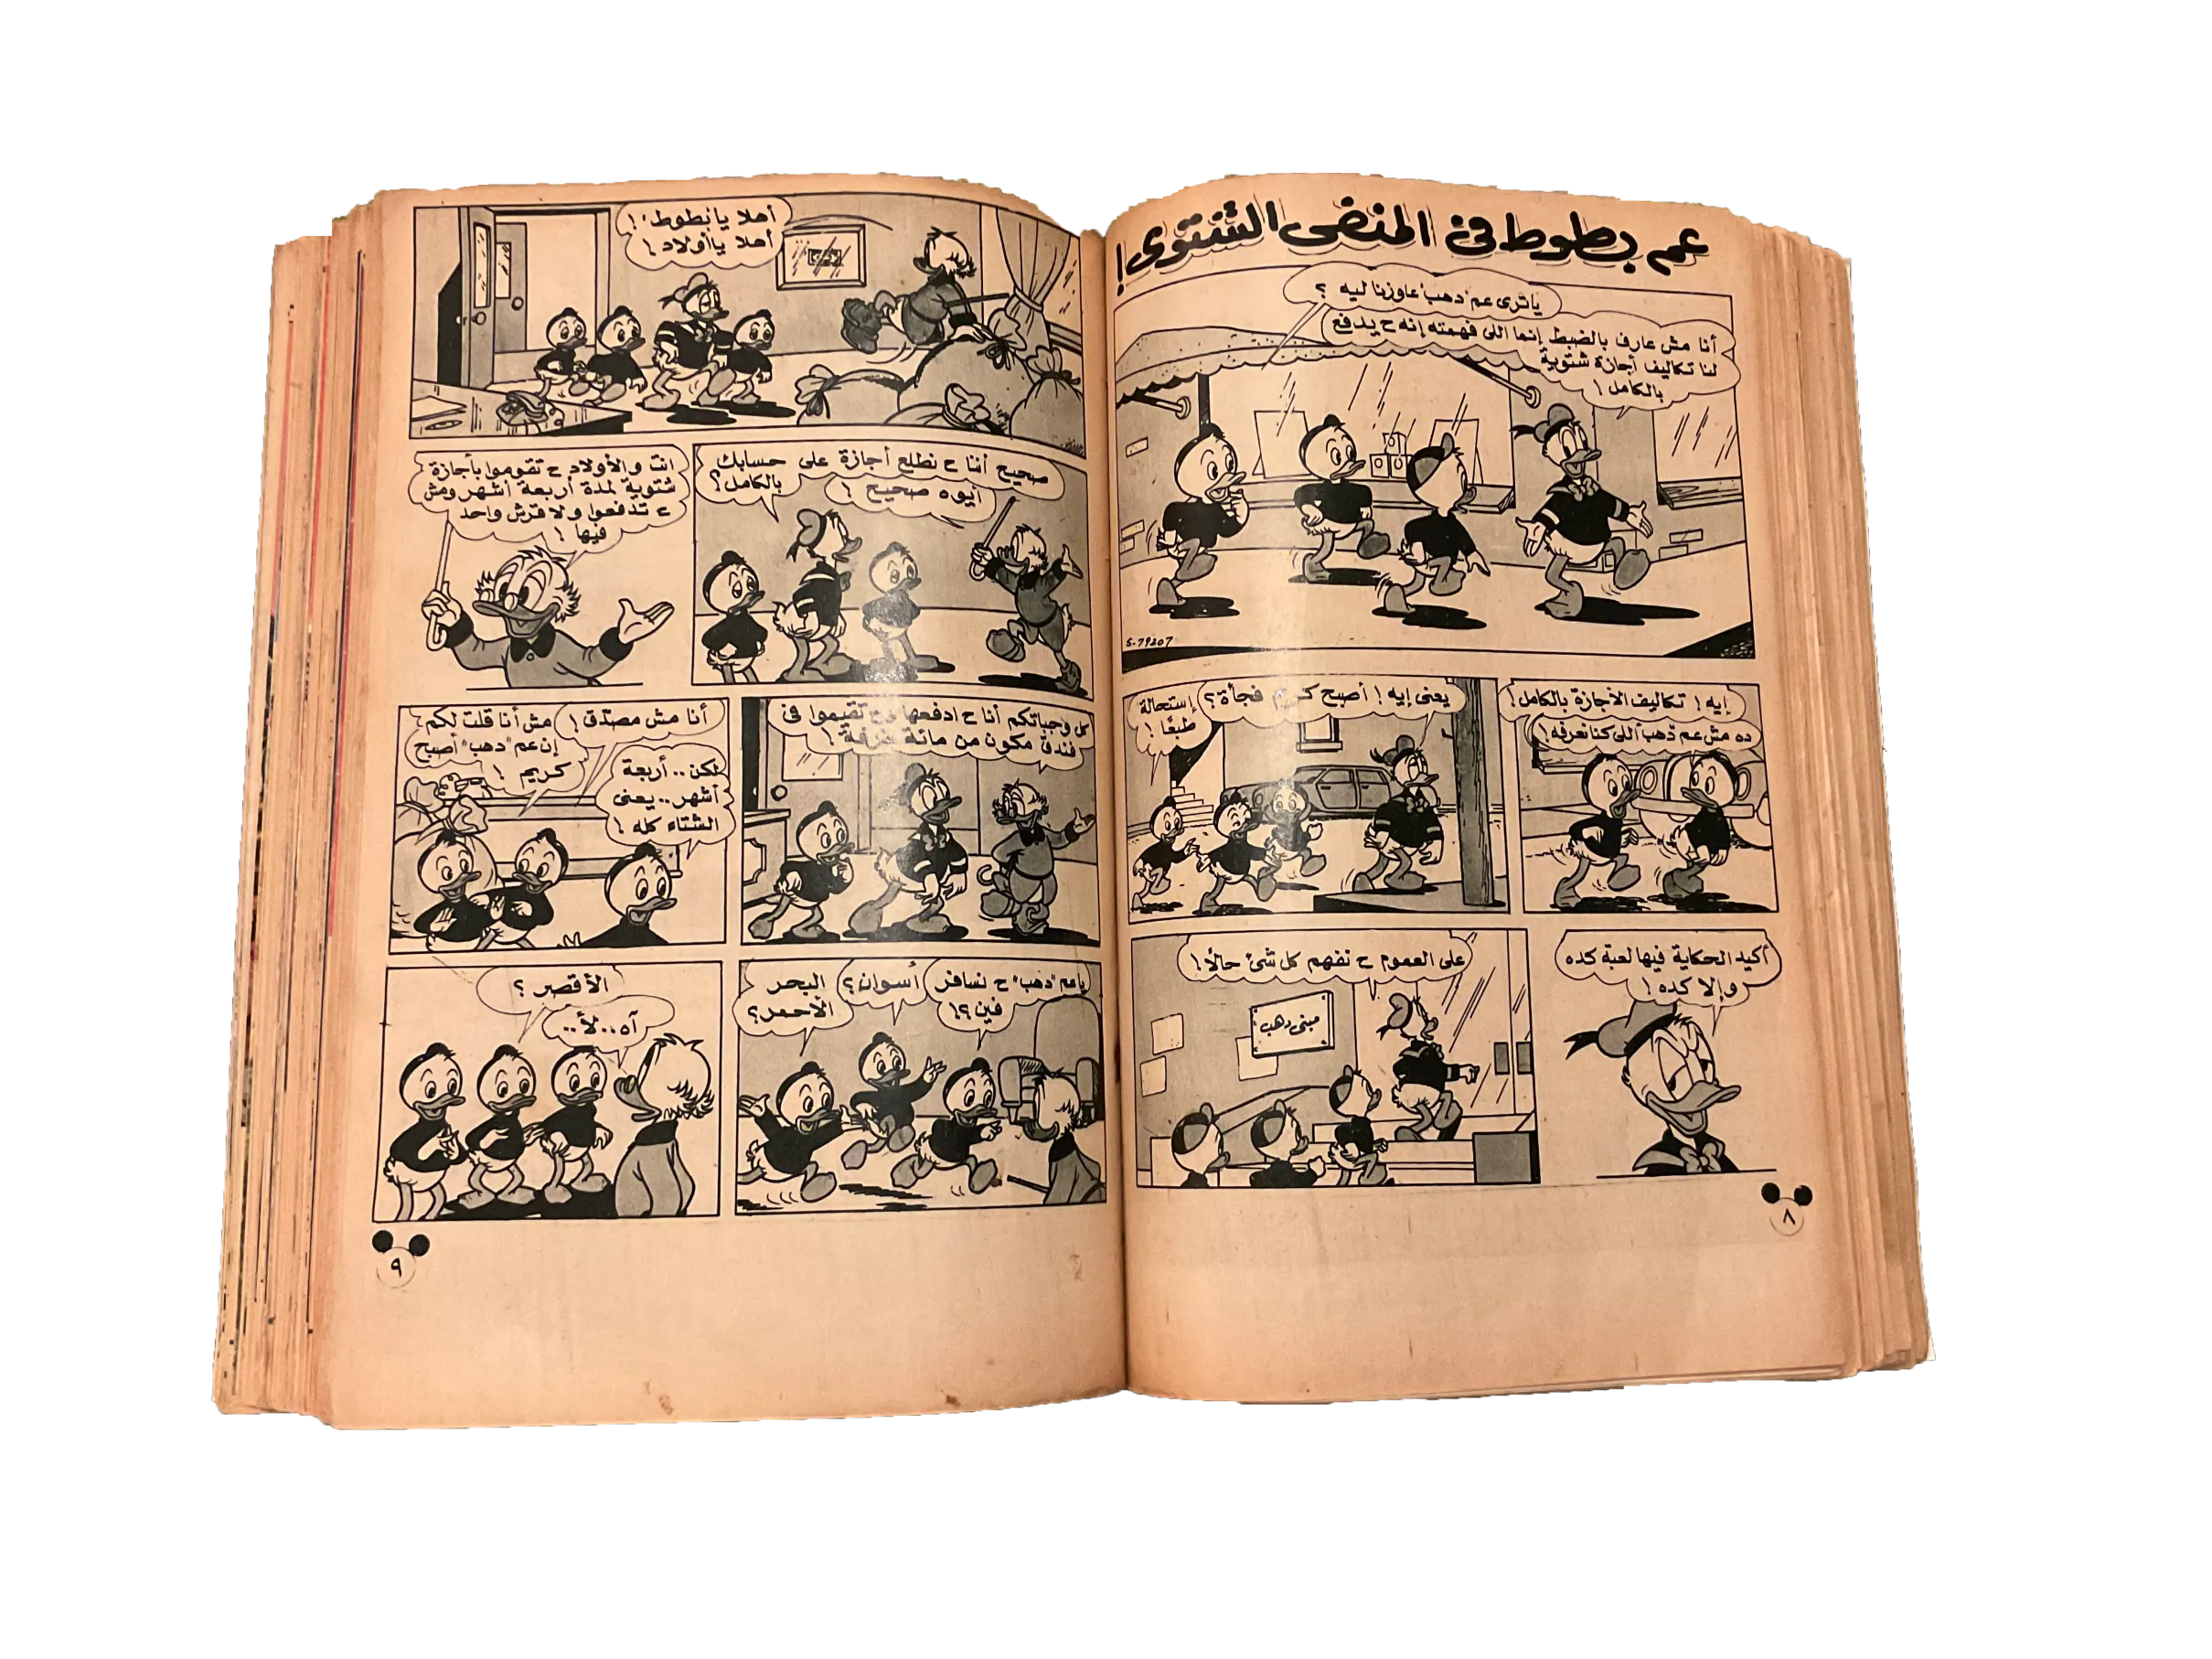 عم بطوط في المنفى الشتوى!
ياترى عم "دهب" عاوزنا ليه ؟
أنا مش عارف بالضبط إنما اللى فهمته إنه ح يدفع
لنا تكاليف أجازة شتوية
بالكامل !
S-79207
إيه ! تكاليف الأجازة بالكامل !
ده مش عم دهب اللى كنا نعرفه !
يعنى إيه ! أصبح كريم فجأة ؟
إستحالة
طبعًا !
أكيد الحكاية فيها لعبة كده
وإلا كده !
على العموم ح تفهم كل شئ حالًا !
مبنى دهب
٨
أهلا يا بطوط !
أهلا يا أولاد !
صحيح أننا ح نطلع أجازة على حسابك
بالكامل ؟
أيوه صحيح !
انت والأولاد ح تقوموا بأجازة
شتوية لمدة أربعة أشهر ومش
ح تدفعوا ولا قرش واحد
فيها !
كل وجباتكم أنا ح ادفعها وح تقيموا فى
فندق مكون من مائة غرفة !
أنا مش مصدق !
مش أنا قلت لكم
إن عم "دهب" أصبح
كريم !
لكن .. أربعة
أشهر .. يعنى
الشتاء كله !
ياعم "دهب" ح نسافر
فين ؟!
أسوان ؟
البحر
الأحمر ؟
الأقصر ؟
آه ... لأ ..
٩